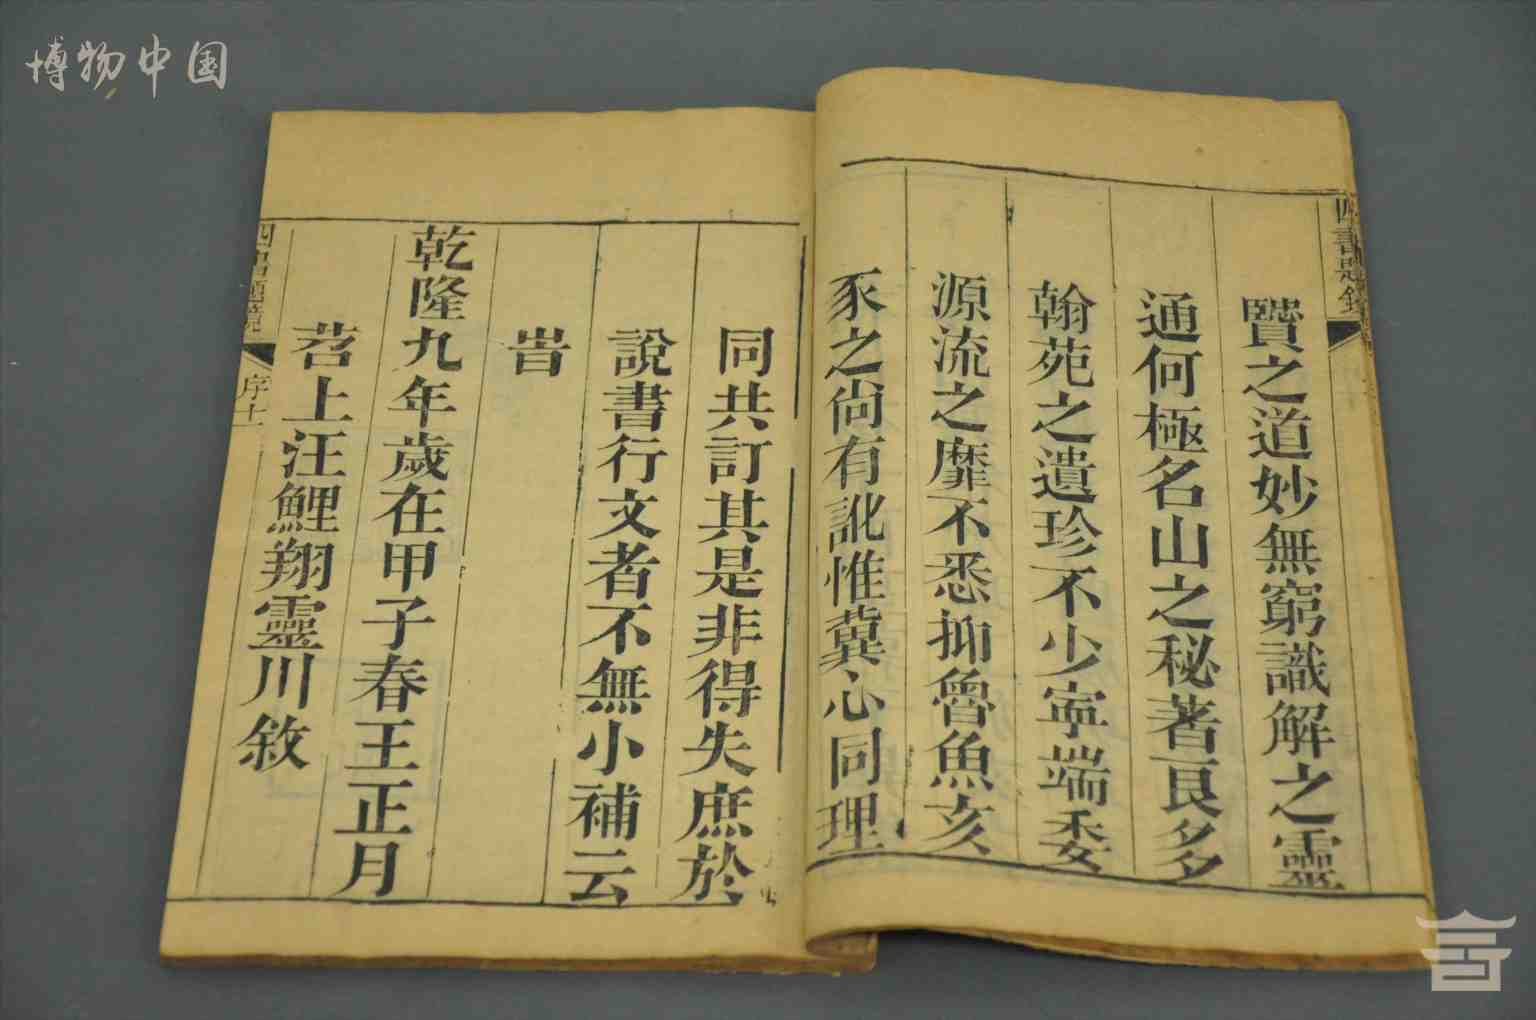 博物中国
四書題鏡
贒之道妙無窮識解之靈
通何極名山之秘著良多
翰苑之遺珍不少寧端委
源流之靡不悉抑魯魚亥
豕之尙有訛惟冀心同理
同共訂其是非得失庶於
說書行文者不無小補云
旹
乾隆九年歲在甲子春王正月
苕上汪鯉翔靈川敘
四書題鏡
序